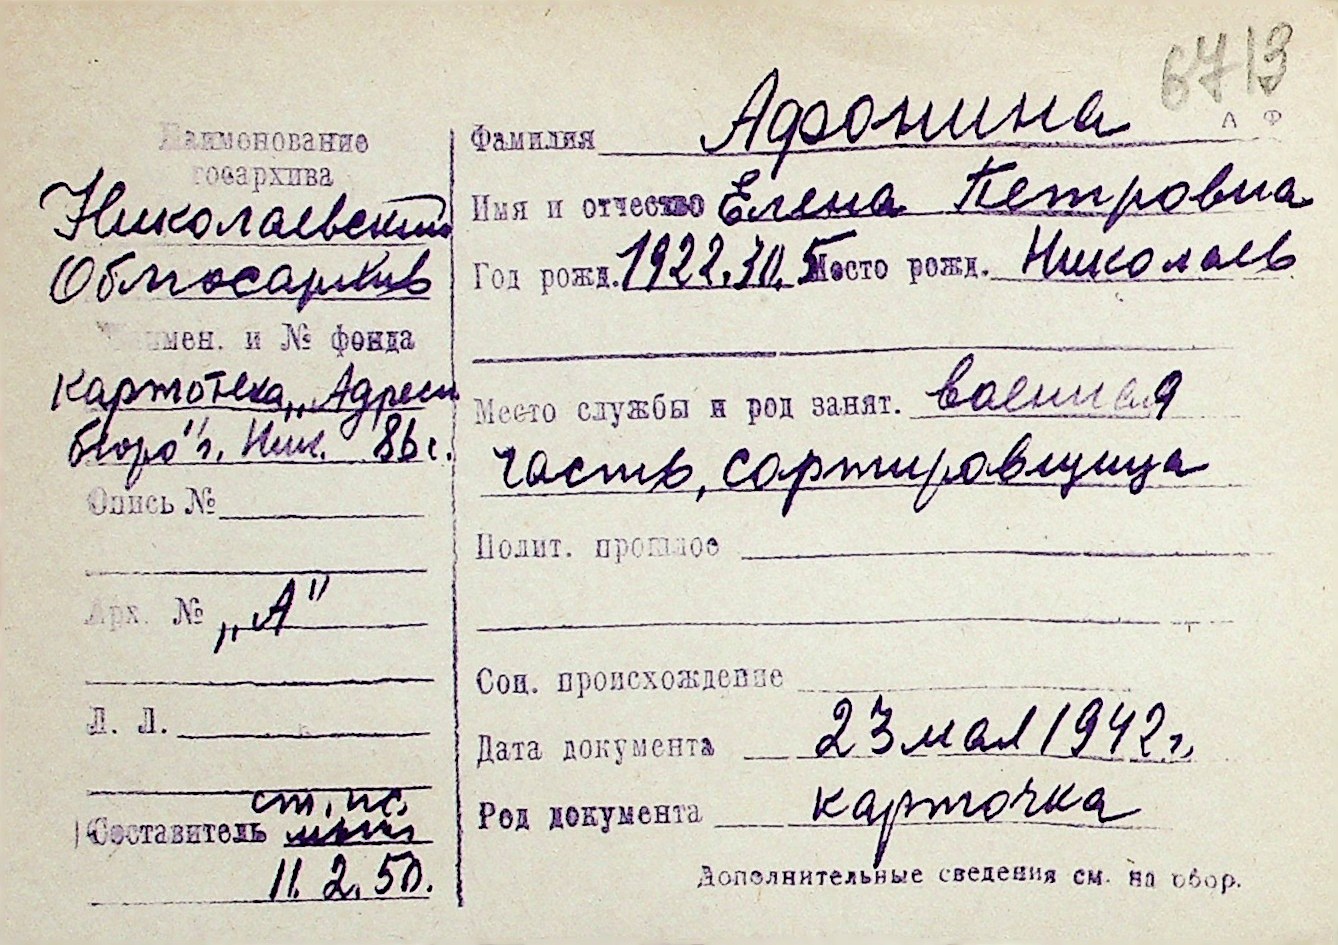 6713
А Ф
Наименование
госархива
Николаевский
Облгосархив
Наимен. и № фонда
картотека „Адресн
бюро" г. Ник. 86 с.
Опись №
Арх. № „А"
Л. Л.
ст. нс.
Составитель
11. 2. 50.
Фамилия Афонина
Имя и отчество Елена Петровна
Год рожд. 1922.30.5 Место рожд. Николаев
Место службы и род занят. военная
часть, сортировщица
Полит. прошлое
Соц. происхождение
Дата документа 23 мая 1942 г.
Род документа карточка
Дополнительные сведения см. на обор.